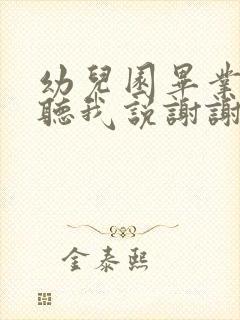 幼兒園畢業
聽我說謝謝
金泰熙